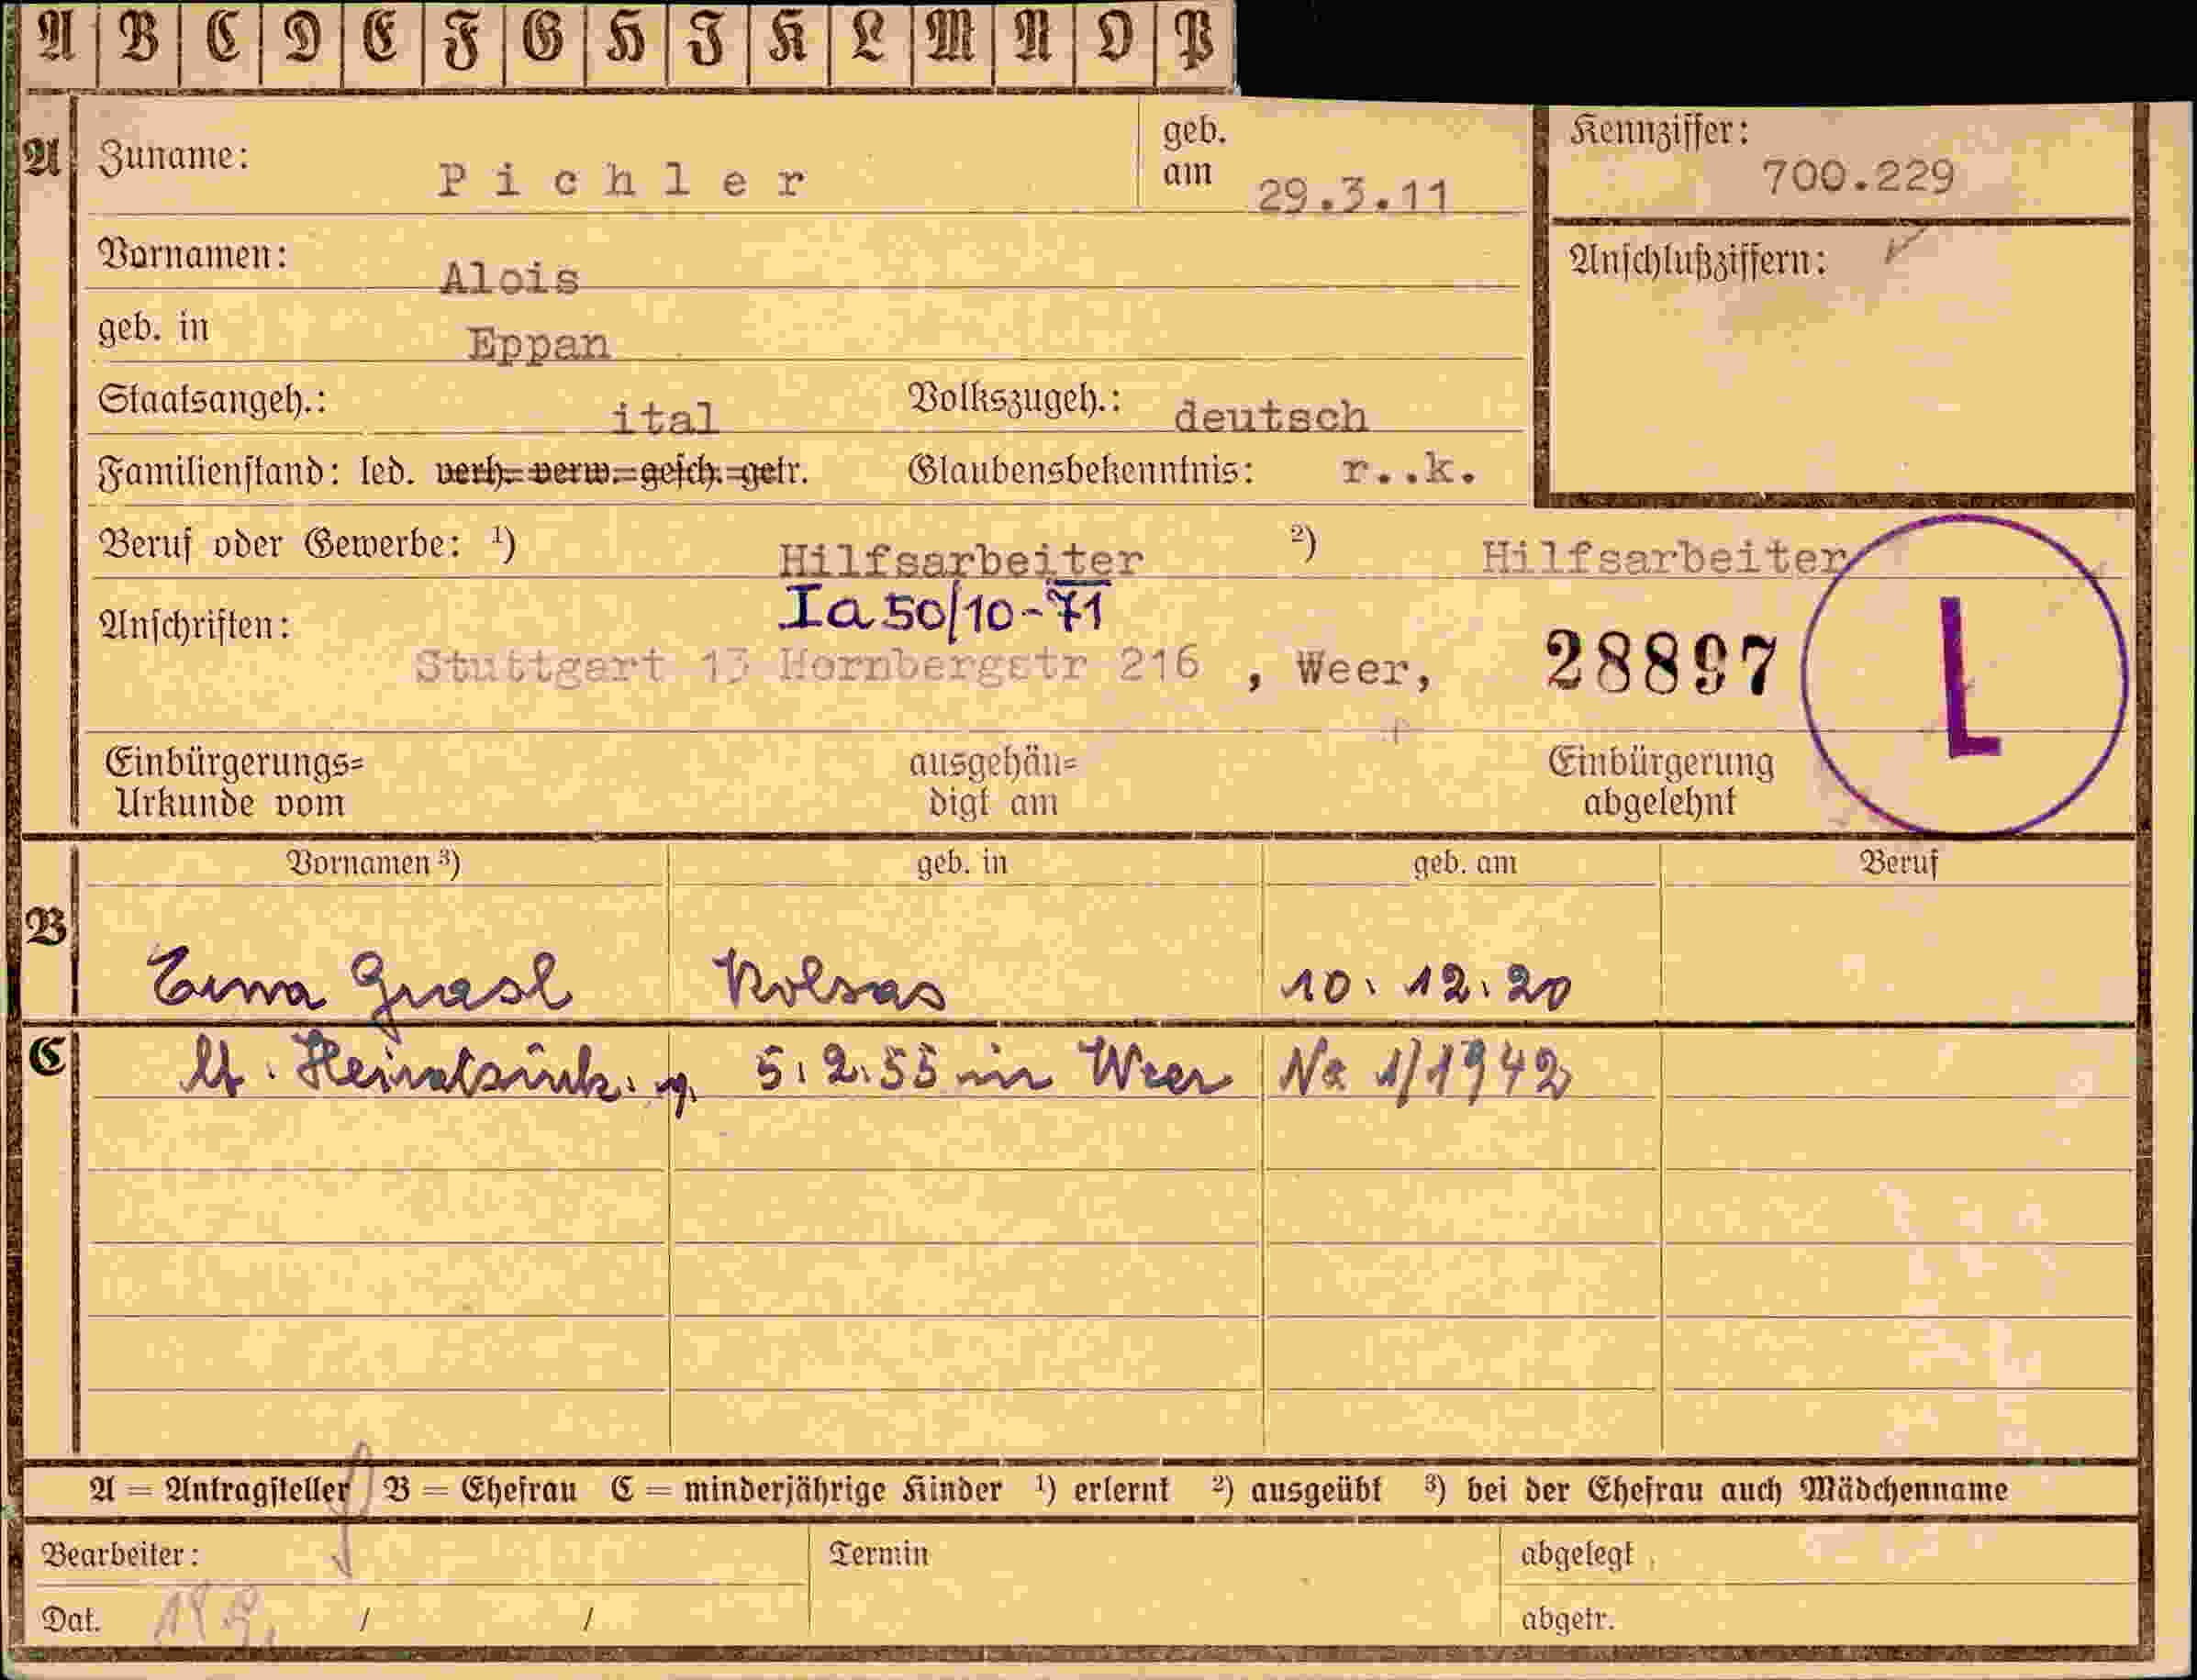 A B C D E F G H I K L M N O P
A Zuname: Pichler geb. am 29.3.11 Kennziffer: 700.229
Vornamen: Alois Anschlußziffern:
geb. in Eppan
Staatsangeh.: ital Volkszugeh.: deutsch
Familienstand: led. verh.=verw.=gesch.=getr. Glaubensbekenntnis: r..k.
Beruf oder Gewerbe: ¹) Hilfsarbeiter ²) Hilfsarbeiter
Ia 50/10-71
Anschriften: Stuttgart 13 Hornbergstr 216 , Weer, 28897 L
Einbürgerungs= Urkunde vom ausgehän= digt am Einbürgerung abgelehnt
Vornamen ³) geb. in geb. am Beruf
B Erna Grasl Kolsas 10. 12. 20
C lt. Heiratsurk. v. 5.2.55 in Weer No 1/1942
A = Antragsteller B = Ehefrau C = minderjährige Kinder ¹) erlernt ²) ausgeübt ³) bei der Ehefrau auch Mädchenname
Bearbeiter: Termin abgelegt
Dat. / / abgetr.